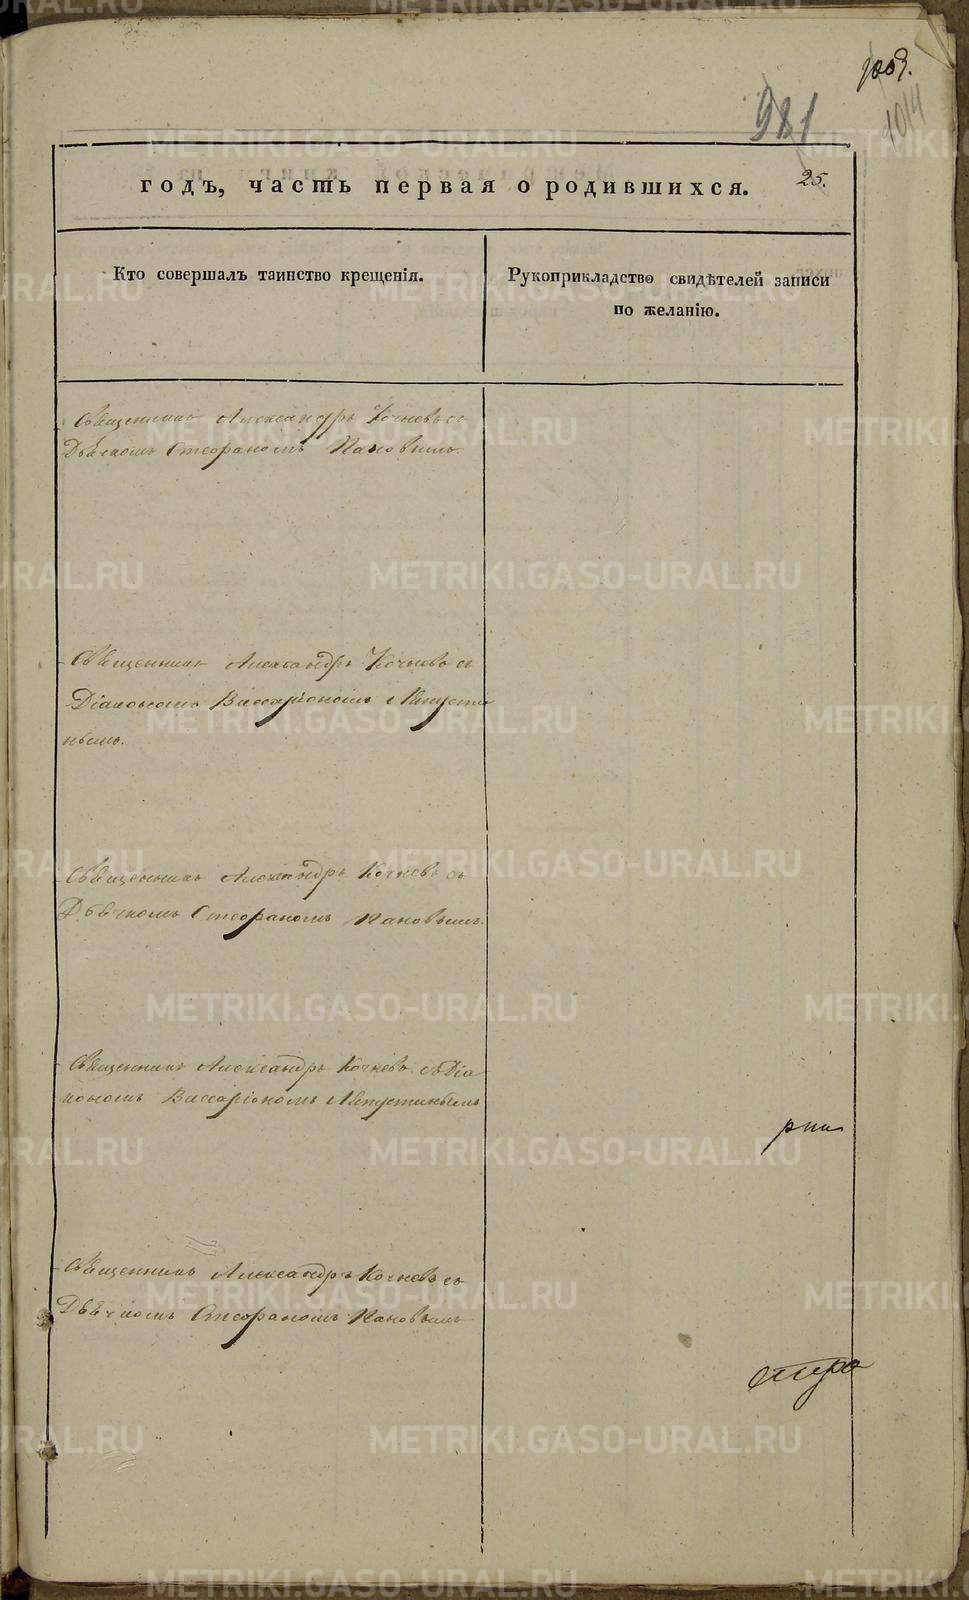 1003.
981
1014
годъ, часть первая о родившихся.
25.
Кто совершалъ таинство крещенія.
Рукоприкладство свидѣтелей записи
по желанію.
Священникъ Александръ Кочневъ съ
Дьячкомъ Стефаномъ Кановымъ
Священникъ Александръ Кочневъ съ
Діакономъ Виссаріономъ
нымъ.
Священникъ Александръ Кочневъ съ
Дьячкомъ Стефаномъ Кановымъ.
Священникъ Александръ Кочневъ съ Діа
кономъ Виссаріономъ
Священникъ Александръ Кочневъ съ
Дьячкомъ Стефаномъ Кановымъ
METRIKI.GASO-URAL.RU